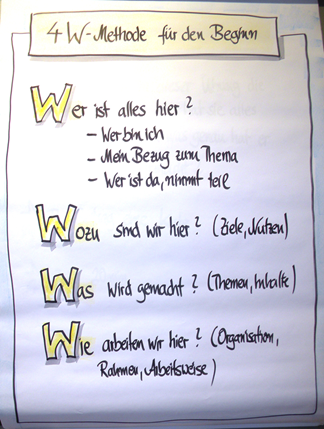 4 W-Methode für den Beginn
Wer ist alles hier?
- Wer bin ich
- Mein Bezug zum Thema
- Wer ist da, nimmt teil
Wozu sind wir hier? (Ziele, Nutzen)
Was wird gemacht? (Themen, Inhalte)
Wie arbeiten wir hier? (Organisation,
Rahmen, Arbeitsweise)